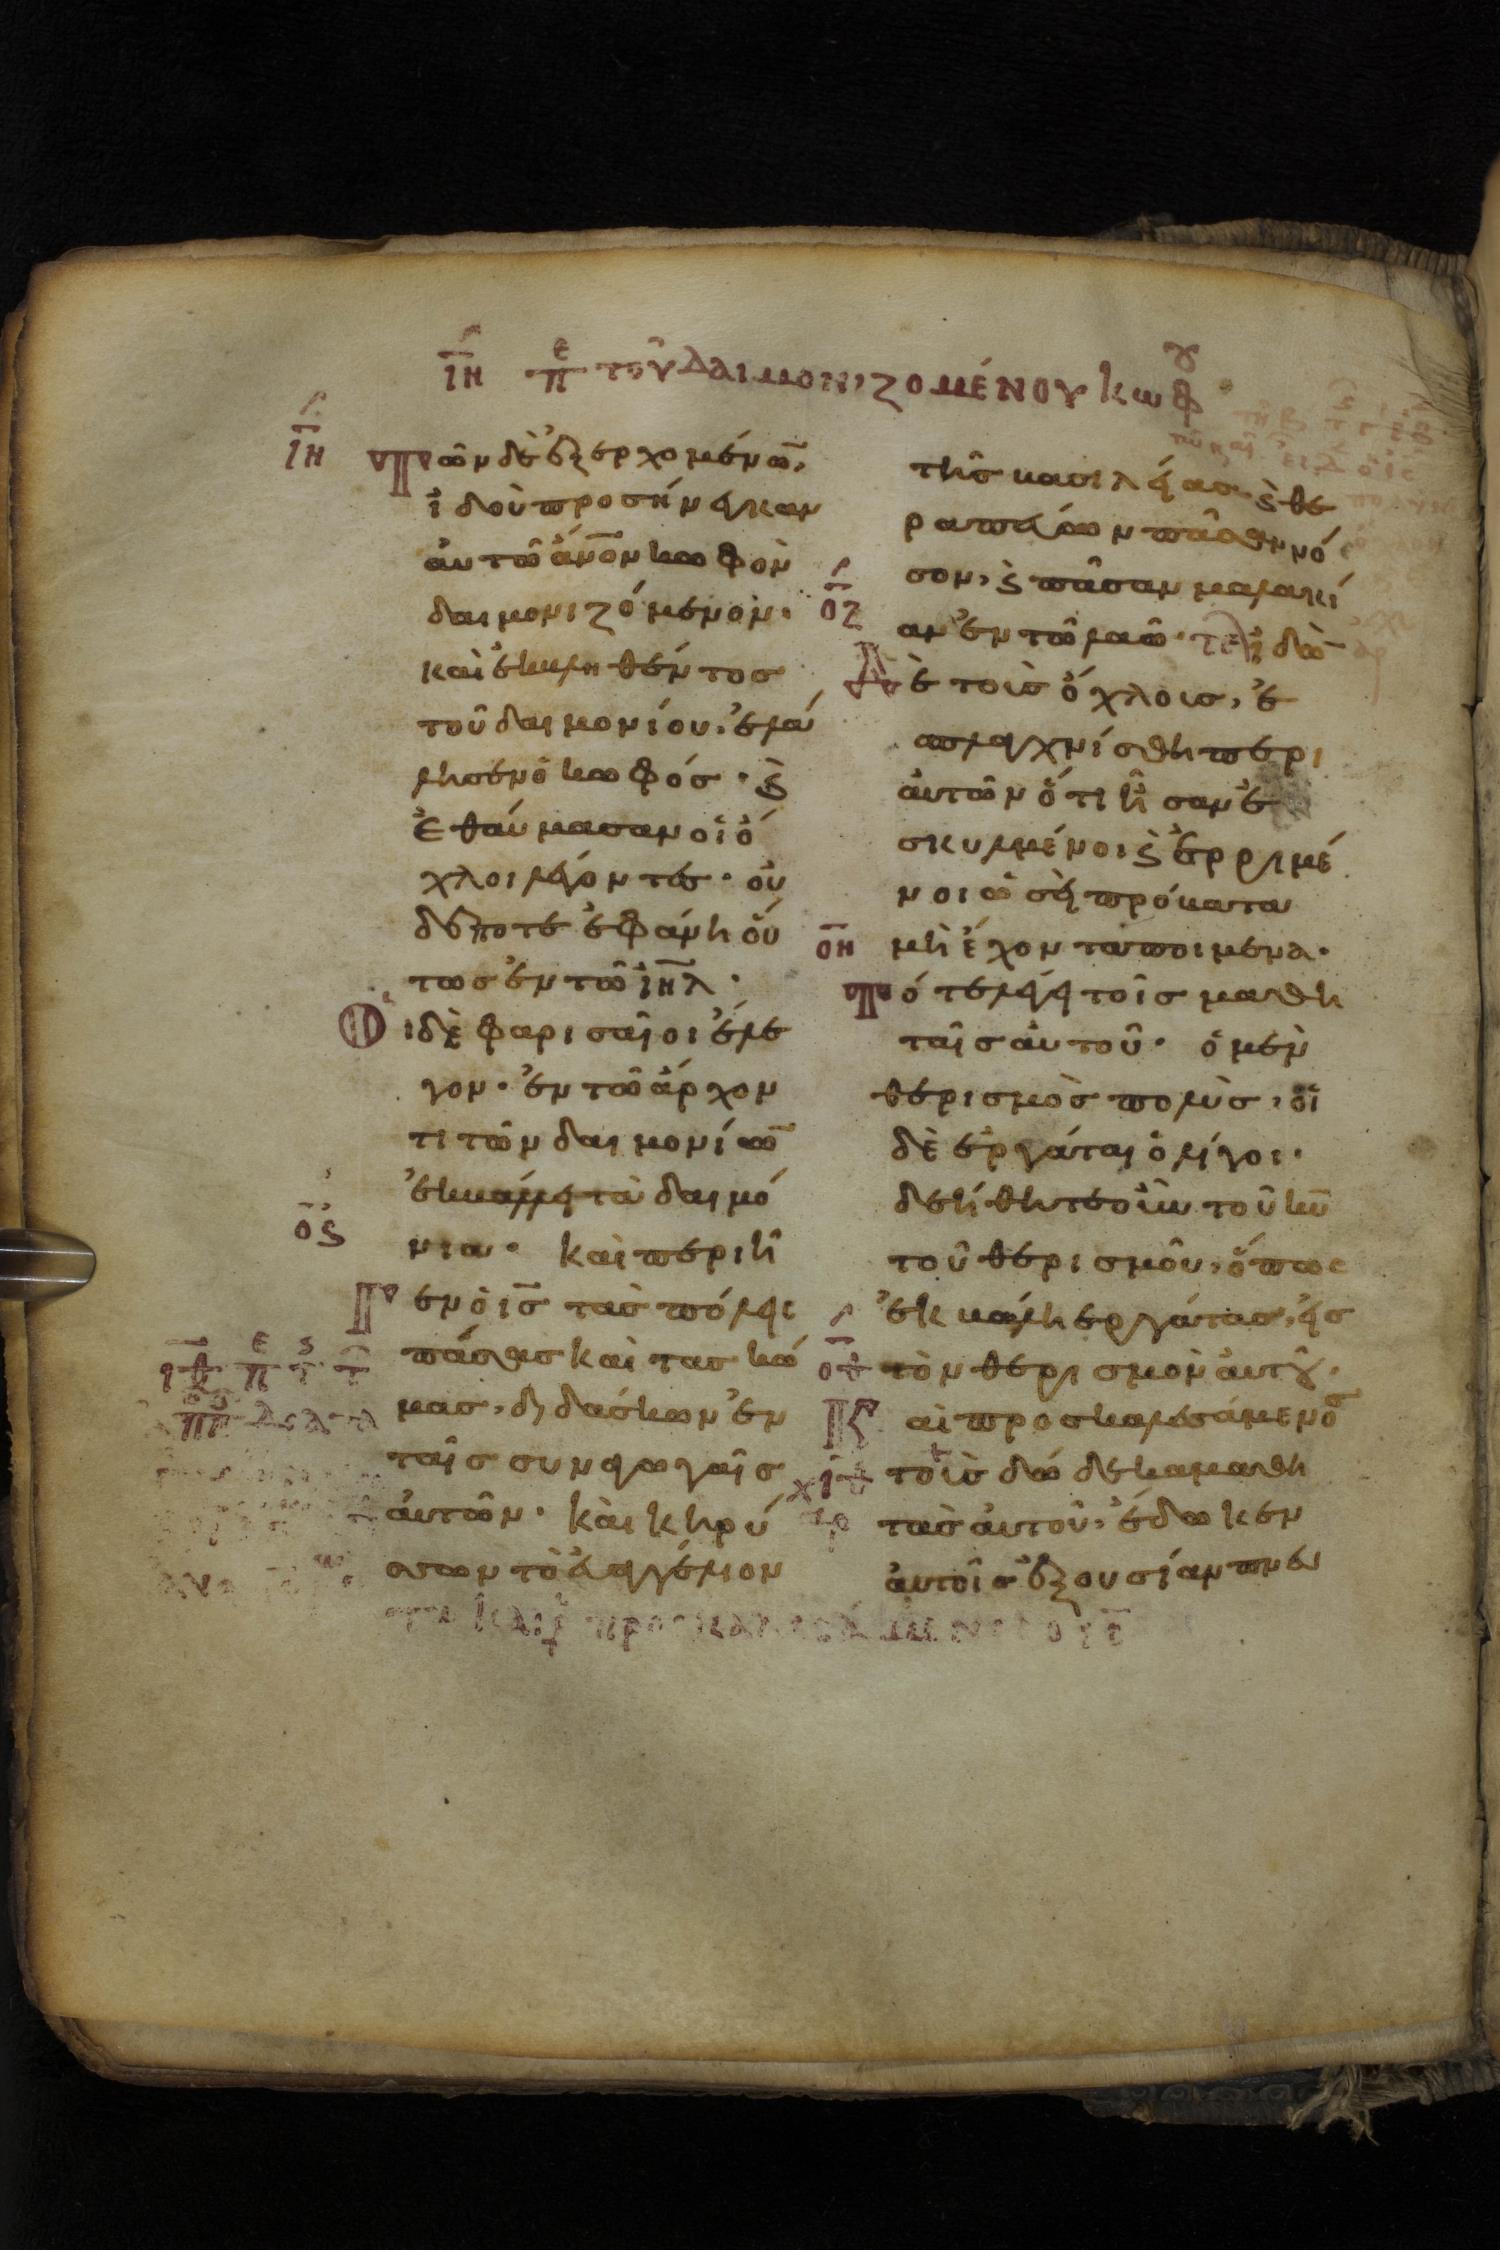 ιη πε τοῦ δαιμονιζομένου κωφου
ιη
Τῶν δὲ ἐξερχομένω̄,
ἰδοὺ προσήνεγκαν
ἀυτῶ ἄν̄ον κωφὸν
δαιμονιζόμενον·
καὶ ἐκβληθέντος
τοῦ δαιμονίου, ἐλά
λησεν ὁ κωφός· ϗ
ἐθαύμασαν οἱ ὄ
χλοι λέγοντες· οὐ
δέποτε ἐφάνη οὕ
τως ἐν τῶ ιη̄λ·
Οἱ δὲ φαρισαῖοι ἔλε
γον· ἐν τῶ ἄρχον
τι τῶν δαιμονίω̄
ἐκβάλλει τὰ δαιμό
νια· καὶ περιῆ
ος
γεν ὁ ις̄ τὰς πόλεις
πάσας καὶ τας κώ
μας, διδάσκων ἐν
ταῖς συναγωγαῖς
ἀυτῶν· καὶ κηρύ
σσων τὸ ἐυαγγέλιον
τῆς βασιλείας ϗ θε
ραπεύων πᾶσαν νό
σον, ϗ πᾶσαν μαλακί
οζ
αν ἐν τῶ λαῶ· τελ ἰδὼ̄
Δὲ τοὺς ὄχλους, ἐ
σπλαγχνίσθη περι
ἀυτῶν ὅτι ἦσαν ἐ
σκυλμένοι ϗ ἐρριμέ
νοι ὡσεὶ πρόβατα
οη
μὴ ἔχοντα ποιμενα·
Τότε λέγει τοῖς μαθη
ταῖς ἀυτοῦ· ὁ μὲν
θερισμὸς πολὺς, οἱ
δὲ ἐργάται ὀλίγοι·
δεήθητε οὖν τοῦ κῡ
τοῦ θερισμοῦ, ὅπως
ἐκβάλη ἐργάτας, εἰς
οθ
τὸν θερισμὸν ἀυτοῦ.
Καὶ προσκαλεσάμενος
ιθ
τοὺς δώδεκα μαθη
αρ
τὰς ἀυτοῦ, ἔδωκεν
ἀυτοῖς ἐξουσίαν πνευ